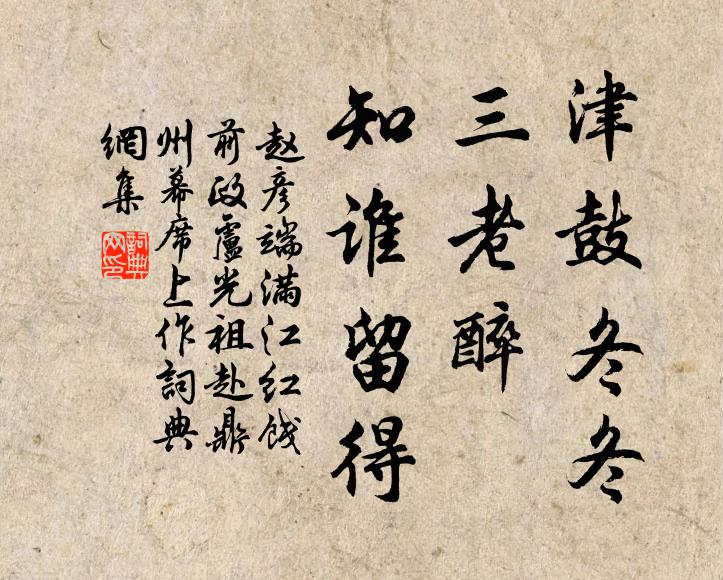 津鼓冬冬
三老醉
知谁留得
赵彦端满江红饯
前政盧光祖赴鼎
州幕席上作詞典
網集
詞典網印